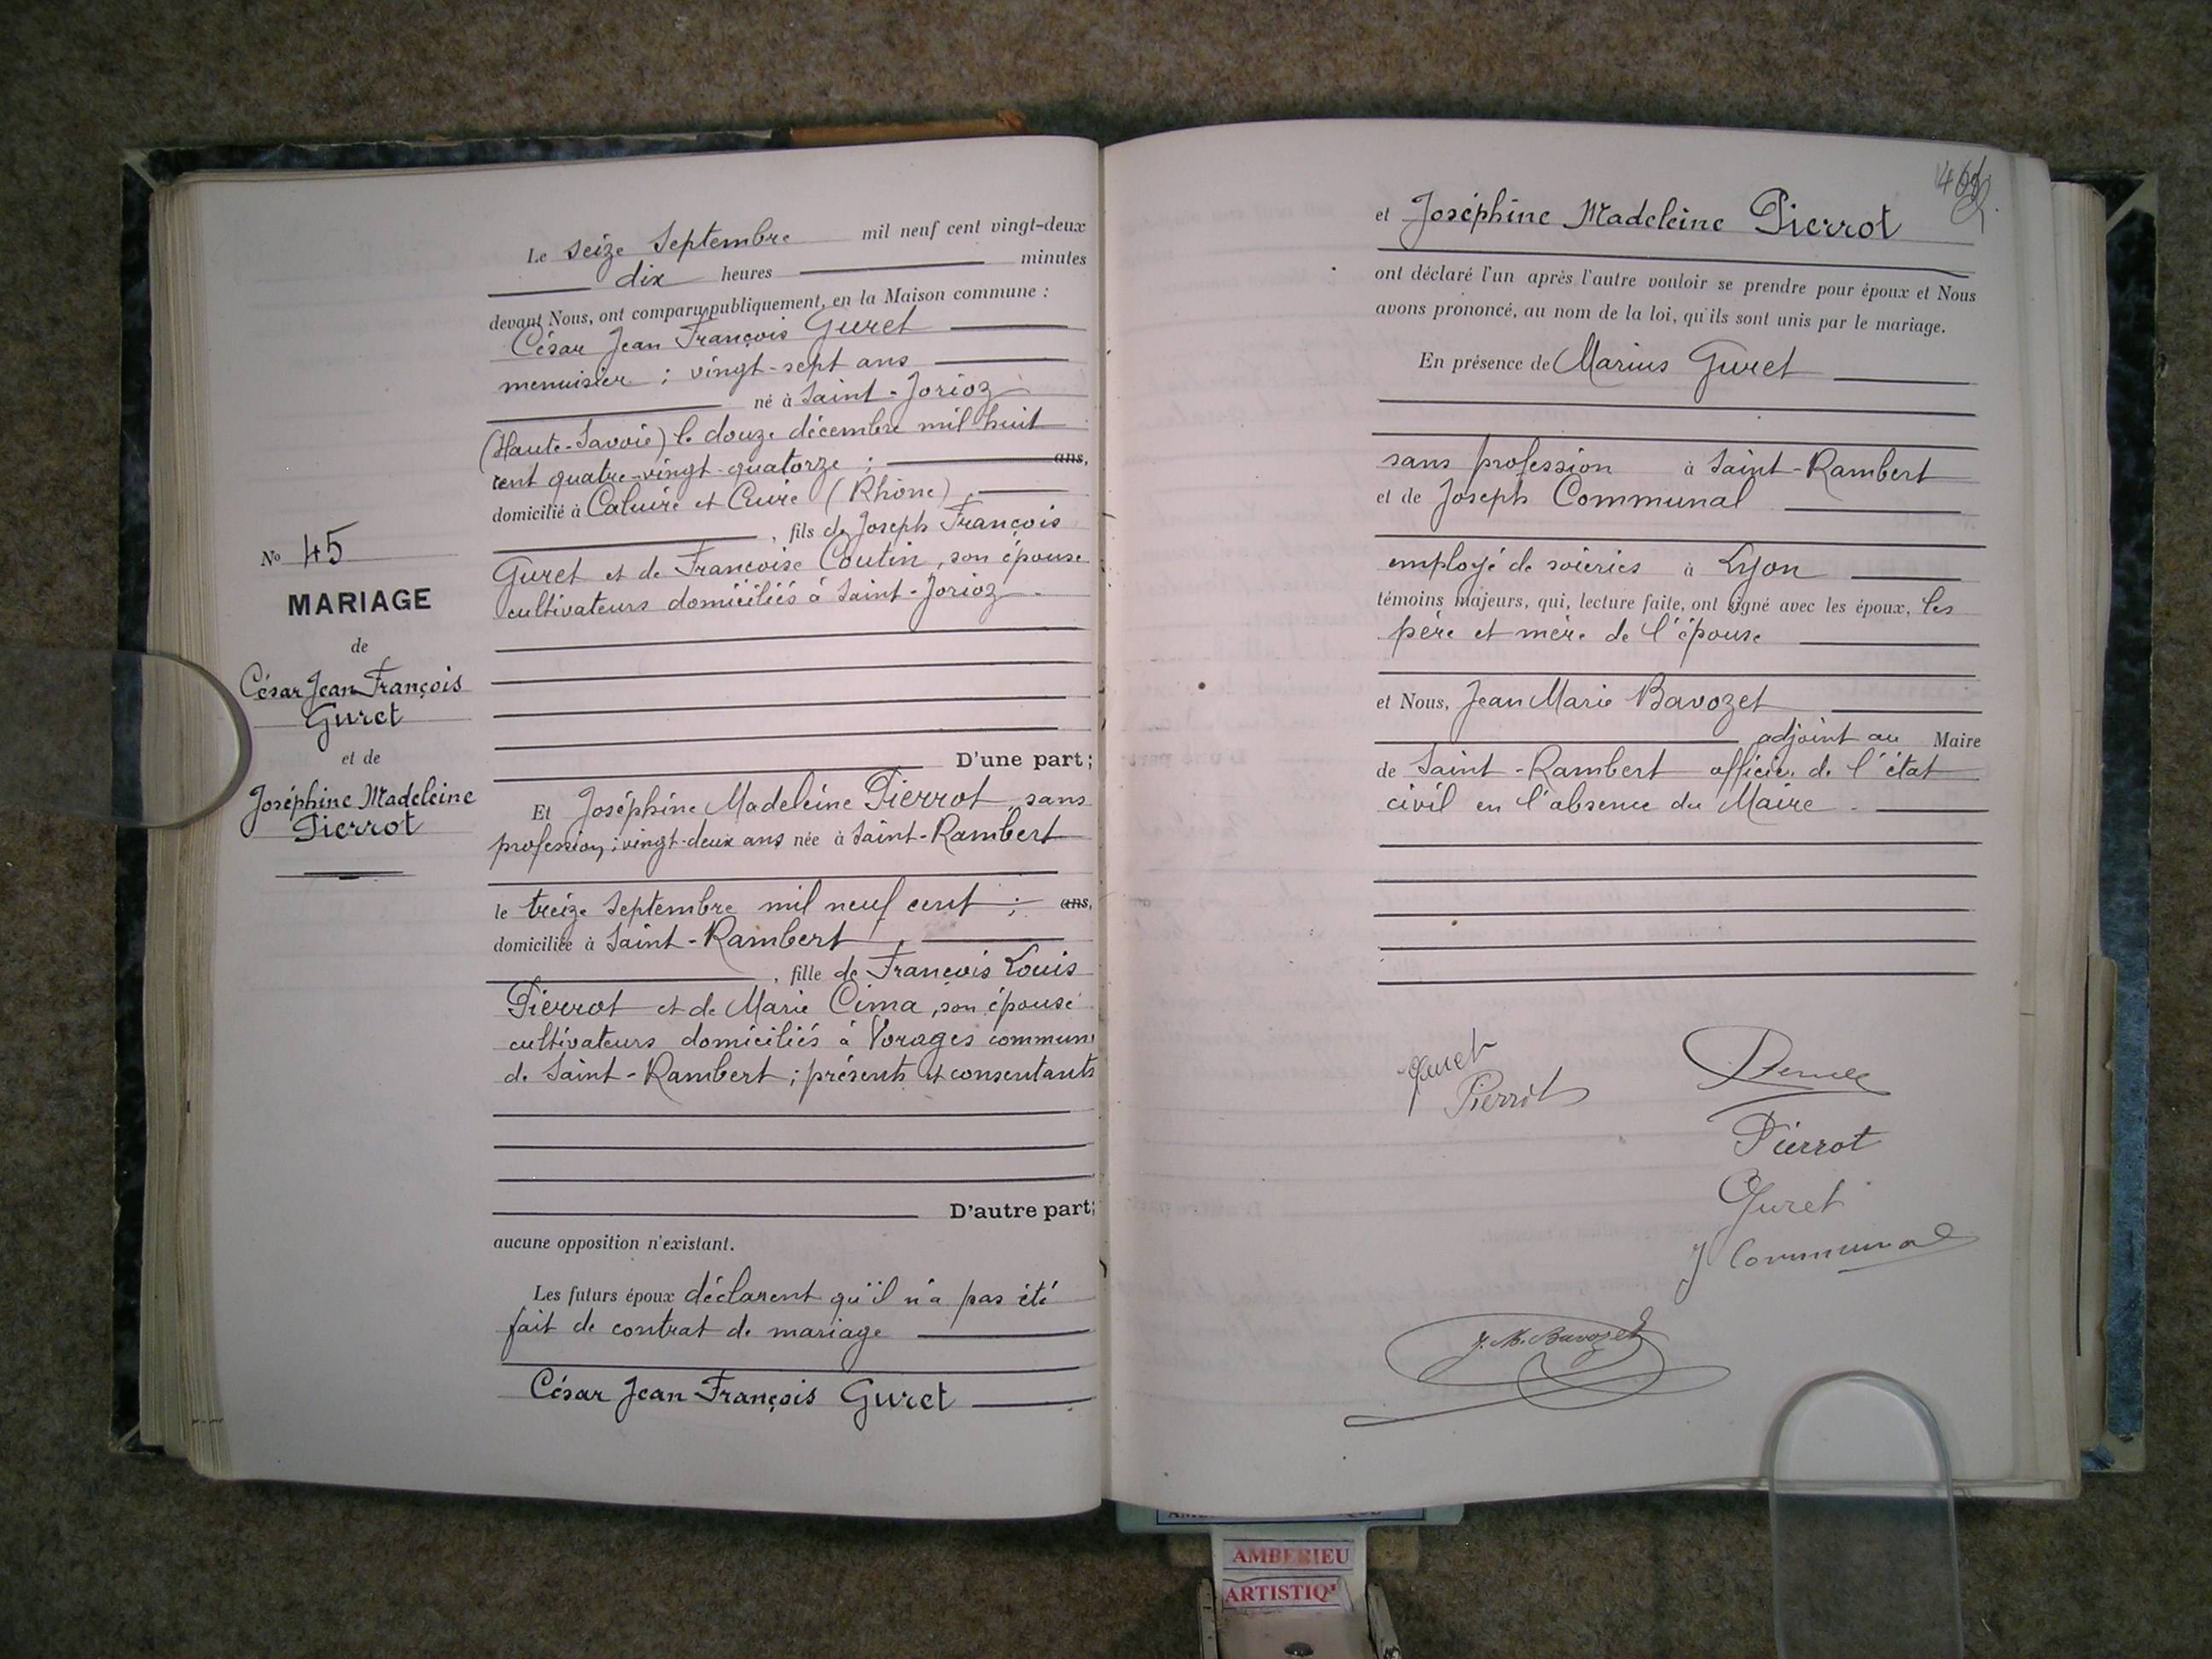 Le seize Septembre mil neuf cent vingt-deux
dix heures minutes
devant Nous, ont comparu publiquement, en la Maison commune :
César Jean François Guret
menuisier ; vingt-sept ans
né à Saint-Jorioz
(Haute-Savoie) le douze décembre mil huit
cent quatre-vingt-quatorze ; ans,
domicilié à Caluire et Cuire (Rhône)
, fils de Joseph François
Guret et de Françoise Coutin, son épouse
cultivateurs domiciliés à Saint-Jorioz
D'une part;
Et Joséphine Madeleine Pierrot, sans
profession ; vingt-deux ans née à Saint-Rambert
le treize Septembre mil neuf cent ; ans,
domiciliée à Saint-Rambert
, fille de François Louis
Pierrot et de Marie Cima, son épouse
cultivateurs domiciliés à Vorages commune
de Saint-Rambert ; présents et consentants
D'autre part;
aucune opposition n'existant.
Les futurs époux déclarent qu'il n'a pas été
fait de contrat de mariage
César Jean François Guret
No 45
MARIAGE
de
César Jean François
Guret
et de
Joséphine Madeleine
Pierrot
et Joséphine Madeleine Pierrot
ont déclaré l'un après l'autre vouloir se prendre pour époux et Nous
avons prononcé, au nom de la loi, qu'ils sont unis par le mariage.
En présence de Marius Guret
sans profession à Saint-Rambert
et de Joseph Communal
employé de soieries à Lyon
témoins majeurs, qui, lecture faite, ont signé avec les époux, les
père et mère de l'épouse
et Nous, Jean Marie Bavozet
adjoint au Maire
de Saint-Rambert officier de l'état
civil en l'absence du Maire
Guret
Pierrot
Pierrot
Guret
J Communal
J. M. Bavozet
AMBERIEU
ARTISTIQ